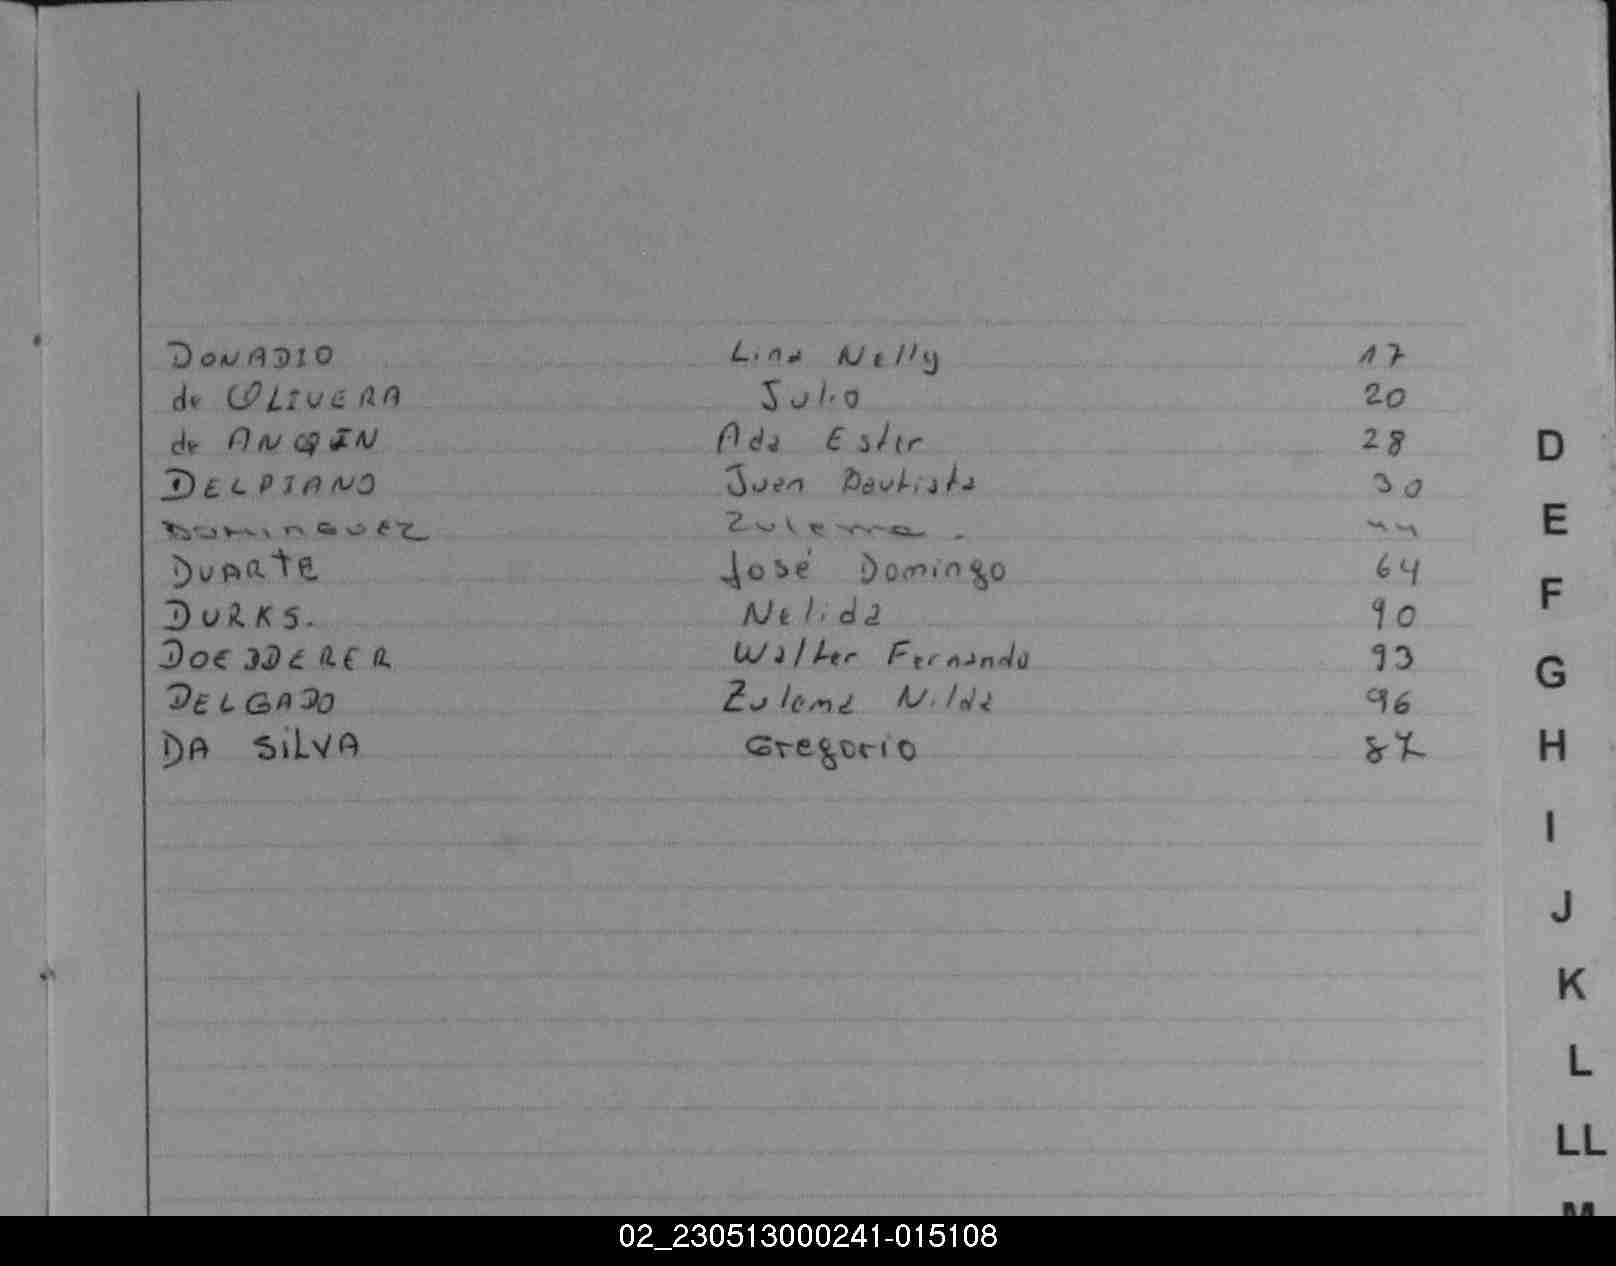 DONADIO Lina Nelly 17
de OLIVERA Julio 20
de ANQUIN Ada Ester 28
DELPIANO Juan Bautista 30
DOMINGUEZ Zulema. 44
DUARTE José Domingo 64
DURKS. Nelida 90
DOEDDERER Walter Fernando 93
DELGADO Zulema Nilda 96
DA SiLVA Gregorio 87
D
E
F
G
H
I
J
K
L
LL
M
02_230513000241-015108